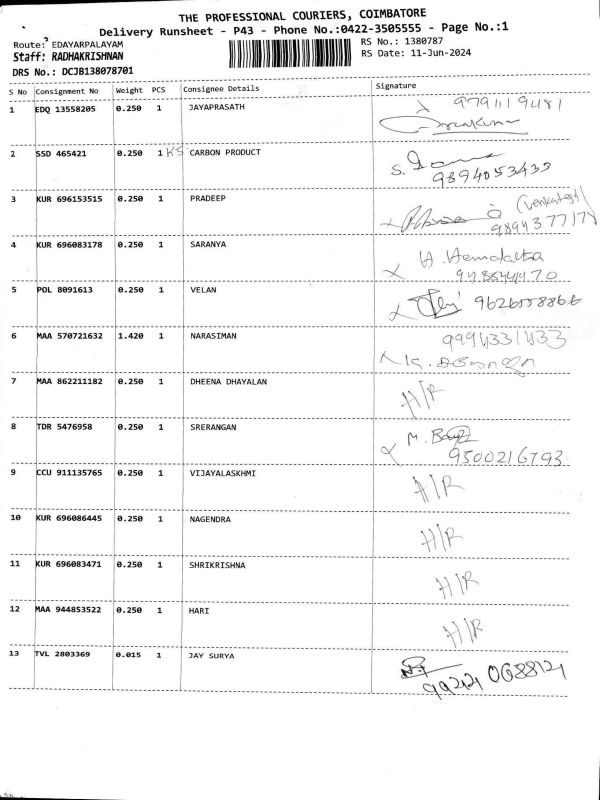 THE PROFESSIONAL COURIERS, COIMBATORE
Delivery Runsheet - P43 - Phone No.:0422-3505555 - Page No.:1
Route: EDAYARPALAYAM
RS No.: 1380787
Staff: RADHAKRISHNAN
RS Date: 11-Jun-2024
DRS No.: DCJB138078701
S No Consignment No Weight PCS Consignee Details Signature
1 EDQ 13558205 0.250 1 JAYAPRASATH
2 SSD 465421 0.250 1 KS CARBON PRODUCT
9894053433
3 KUR 696153515 0.250 1 PRADEEP
(Venkatesh)
4 KUR 696083178 0.250 1 SARANYA H. Hemalatha
5 POL 8091613 0.250 1 VELAN
6 MAA 570721632 1.420 1 NARASIMAN 9994331433
7 MAA 862211182 0.250 1 DHEENA DHAYALAN H/R
8 TDR 5476958 0.250 1 SRERANGAN
9500216793
9 CCU 911135765 0.250 1 VIJAYALASKHMI H/R
10 KUR 696086445 0.250 1 NAGENDRA H/R
11 KUR 696083471 0.250 1 SHRIKRISHNA H/R
12 MAA 944853522 0.250 1 HARI H/R
13 TVL 2803369 0.015 1 JAY SURYA